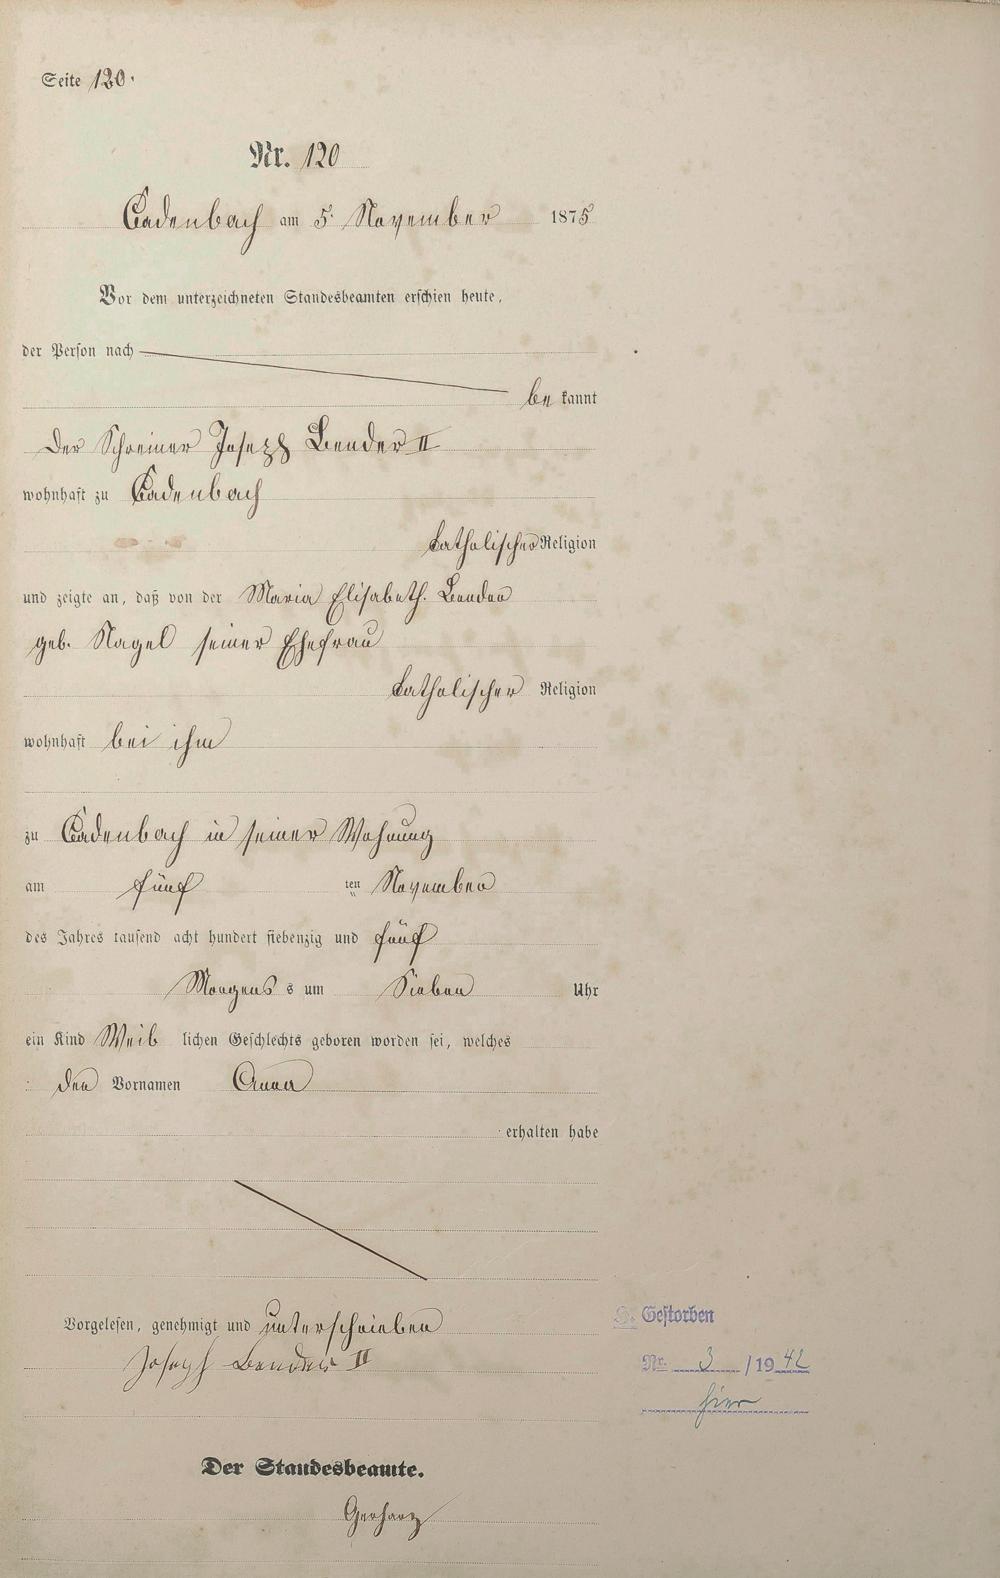 Seite 120.
Nr. 120
Cadenbach am 5. November 1875
Vor dem unterzeichneten Standesbeamten erschien heute,
der Person nach
be kannt
Der Schreiner Joseph Bender II
wohnhaft zu Cadenbach
katholischer Religion
und zeigte an, daß von der Maria Elisabeth. Bender
geb. Nagel seiner Ehefrau
katholischer Religion
wohnhaft bei ihm
zu Cadenbach in seiner Wohnung
am fünf ten November
des Jahres tausend acht hundert siebenzig und fünf
Morgens s um Sieben Uhr
ein Kind Weib lichen Geschlechts geboren worden sei, welches
den Vornamen Anna
erhalten habe
Vorgelesen, genehmigt und unterschrieben
Joseph Bender II
Gestorben
Nr. 3 /19 42
hier
Der Standesbeamte.
Gerharz